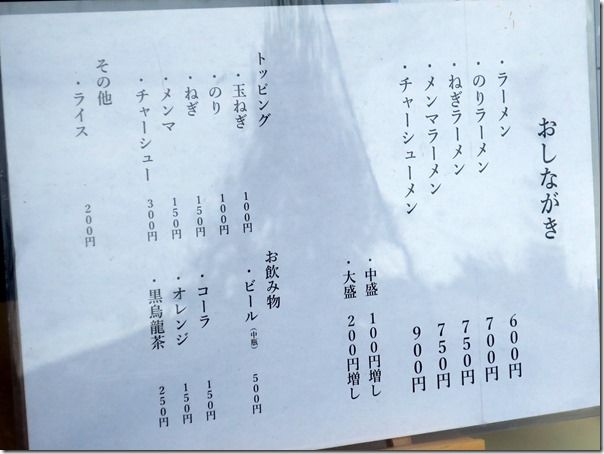 おしながき
・ラーメン 600円
・のりラーメン 700円
・ねぎラーメン 750円
・メンマラーメン 750円
・チャーシューメン 900円
・中盛 100円増し
・大盛 200円増し
トッピング
・玉ねぎ 100円
・のり 100円
・ねぎ 150円
・メンマ 150円
・チャーシュー 300円
その他
・ライス 200円
お飲み物
・ビール(中瓶) 500円
・コーラ 150円
・オレンジ 150円
・黒烏龍茶 250円